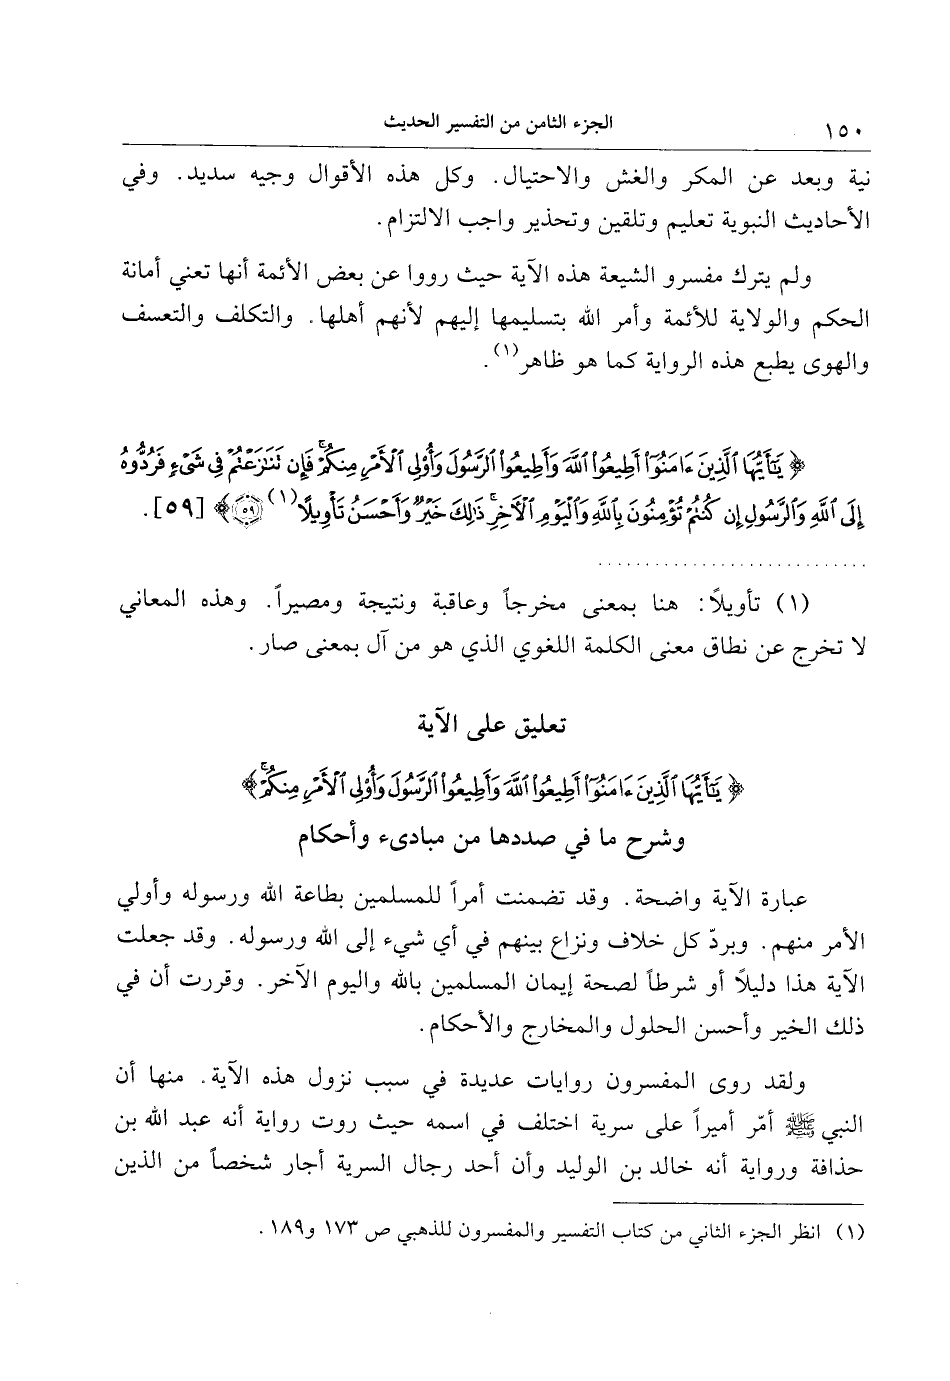 ١٥٠ الجزء الثامن من التفسير الحديث
نية وبعد عن المكر والغش والاحتيال. وكل هذه الأقوال وجيه سديد. وفي
الأحاديث النبوية تعليم وتلقين وتحذير واجب الالتزام.
ولم يترك مفسرو الشيعة هذه الآية حيث رووا عن بعض الأئمة أنها تعني أمانة
الحكم والولاية للأئمة وأمر الله بتسليمها إليهم لأنهم أهلها. والتكلف والتعسف
والهوى يطبع هذه الرواية كما هو ظاهر(١).
﴿ يَٰٓأَيُّهَا ٱلَّذِينَ ءَامَنُوٓاْ أَطِيعُواْ ٱللَّهَ وَأَطِيعُواْ ٱلرَّسُولَ وَأُوْلِى ٱلْأَمْرِ مِنكُمْۖ فَإِن تَنَٰزَعْتُمْ فِى شَىْءٍ فَرُدُّوهُ
إِلَى ٱللَّهِ وَٱلرَّسُولِ إِن كُنتُمْ تُؤْمِنُونَ بِٱللَّهِ وَٱلْيَوْمِ ٱلْأَخِرِۚ ذَٰلِكَ خَيْرٌ وَأَحْسَنُ تَأْوِيلًا(١) ٥٩﴾ [٥٩].
(١) تأويلاً: هنا بمعنى مخرجاً وعاقبة ونتيجة ومصيراً. وهذه المعاني
لا تخرج عن نطاق معنى الكلمة اللغوي الذي هو من آل بمعنى صار.
تعليق على الآية
﴿ يَٰٓأَيُّهَا ٱلَّذِينَ ءَامَنُوٓاْ أَطِيعُواْ ٱللَّهَ وَأَطِيعُواْ ٱلرَّسُولَ وَأُوْلِى ٱلْأَمْرِ مِنكُمْۖ﴾
وشرح ما في صددها من مبادىء وأحكام
عبارة الآية واضحة. وقد تضمنت أمراً للمسلمين بطاعة الله ورسوله وأولي
الأمر منهم. وبردّ كل خلاف ونزاع بينهم في أي شيء إلى الله ورسوله. وقد جعلت
الآية هذا دليلاً أو شرطاً لصحة إيمان المسلمين بالله واليوم الآخر. وقررت أن في
ذلك الخير وأحسن الحلول والمخارج والأحكام.
ولقد روى المفسرون روايات عديدة في سبب نزول هذه الآية. منها أن
النبي ﷺ أمّر أميراً على سرية اختلف في اسمه حيث روت رواية أنه عبد الله بن
حذافة ورواية أنه خالد بن الوليد وأن أحد رجال السرية أجار شخصاً من الذين
(١) انظر الجزء الثاني من كتاب التفسير والمفسرون للذهبي ص ١٧٣ و١٨٩.